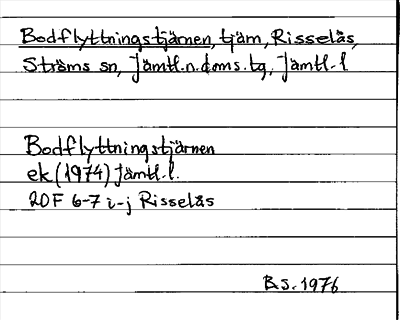 Bodflyttningstjärnen, tjärn, Risselås,
Ströms sn, Jämtl.n.doms.tg, Jämtl. l
Bodflyttningstjärnen
ek (1974) Jämtl.l.
20F 6-7 i-j Risselås
B.S. 1976